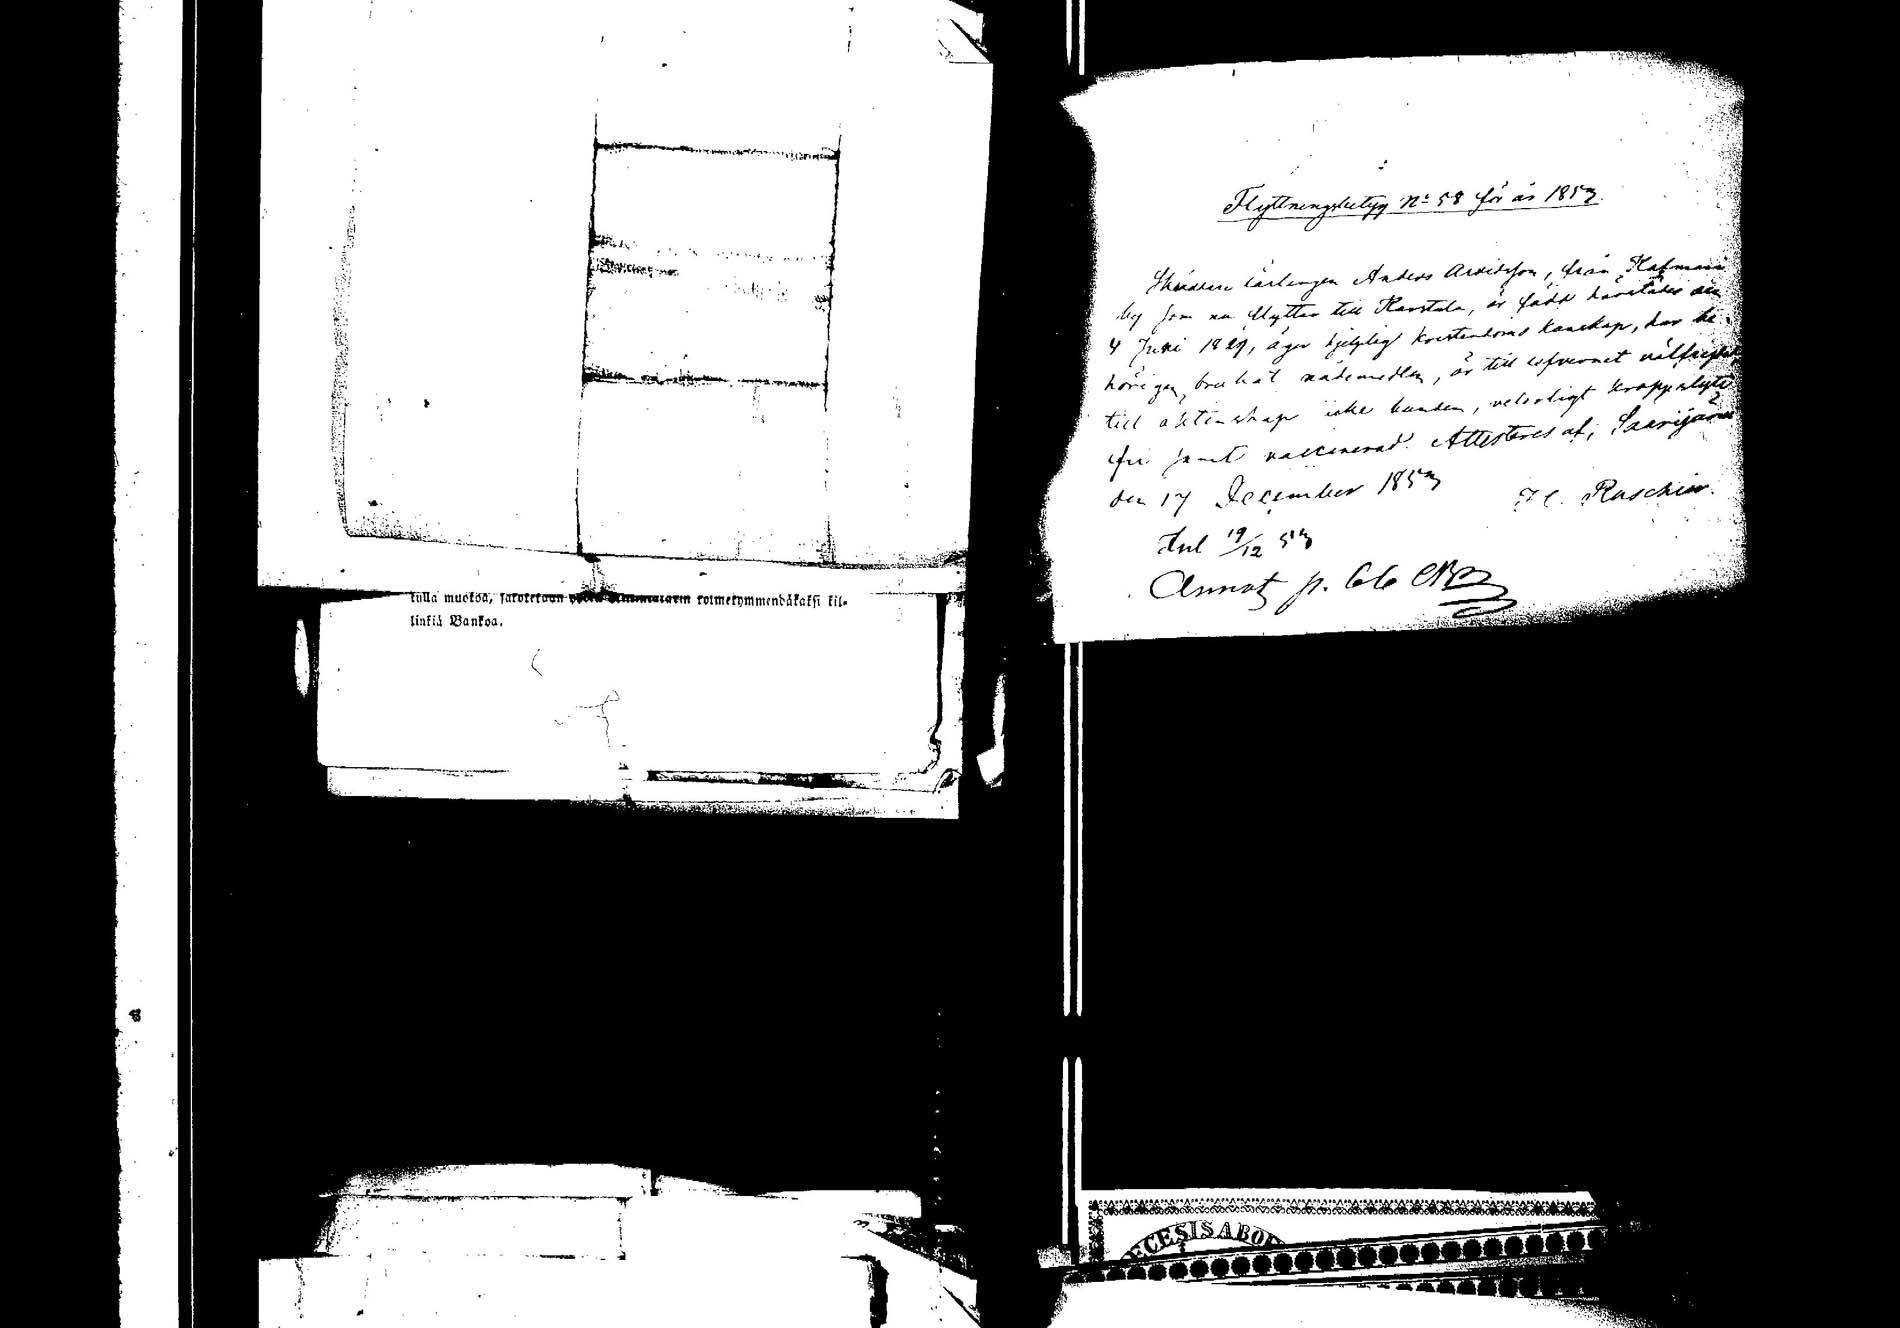 kulla muotoa, sakotetaan kolmekymmendäkaksi kil-
linkiä Bankoa.
Flyttningsbetyg No 58 för år 1853.
Skräddare lärlingen Anders Arvidsson, från
by som nu flyttar till Karstula, är född härstädes den
4 Juni 1829, äger hjelplig kristendoms kunskap, har be-
hörigen brukat nådemedlen, är till wäl
till äktenskap icke bunden, kropps lyte
fri samt vaccinerad. Attesteras af, Saarijärvi
den 17 December 1853
Anl 19/12 53
Annot p.
ECESIS ABOE